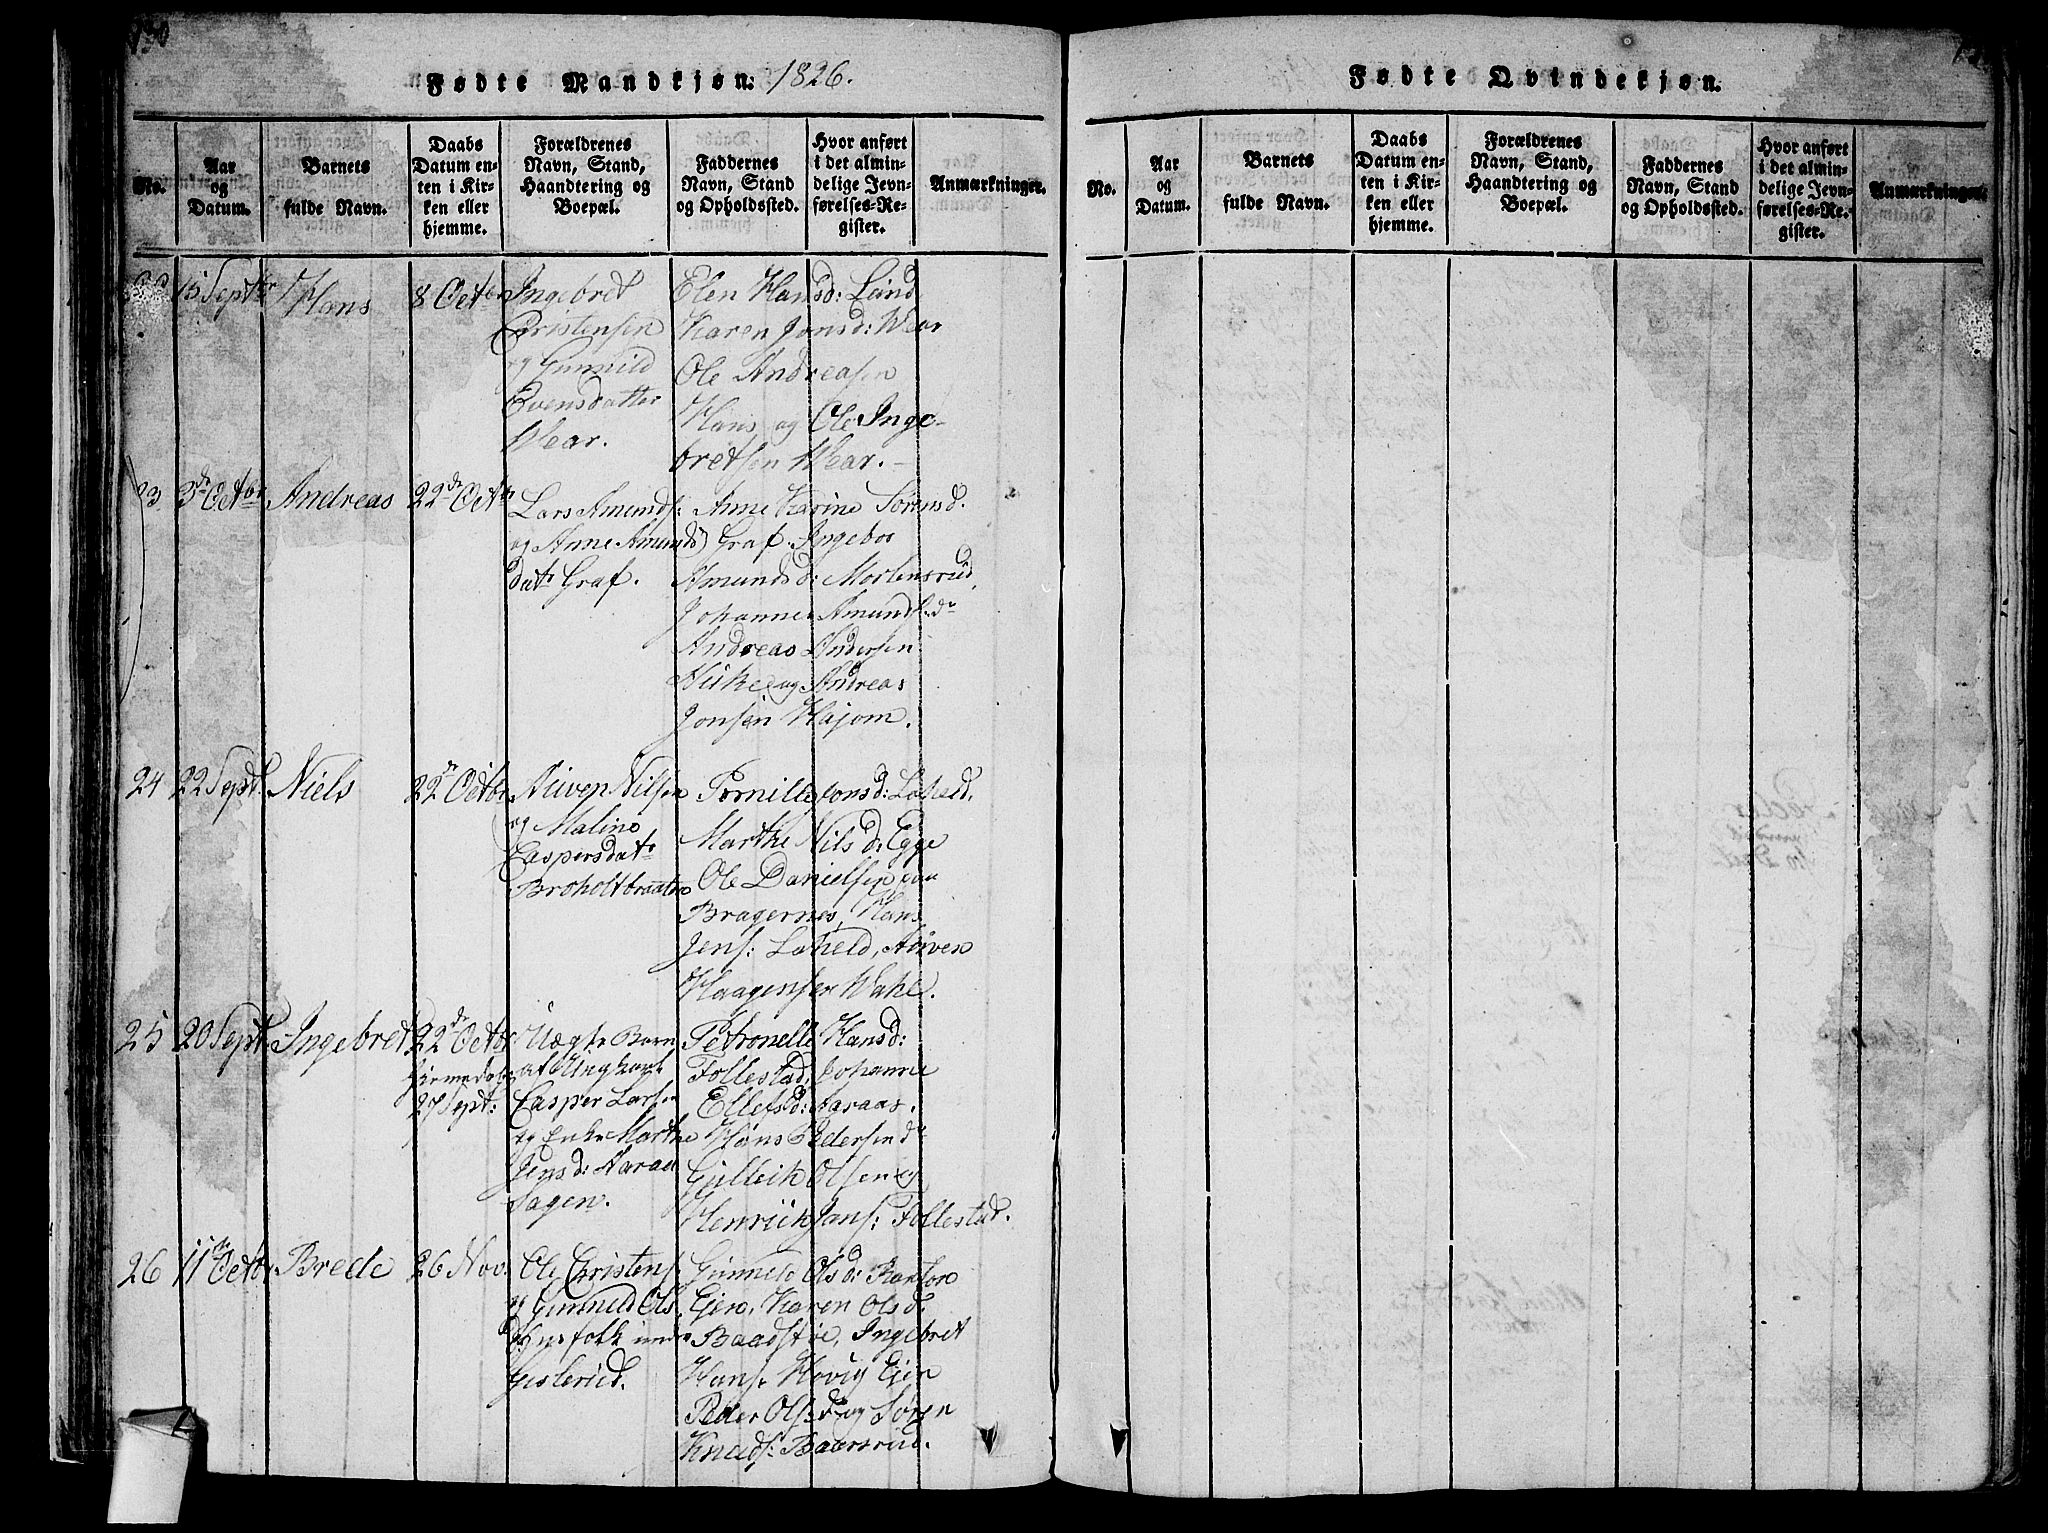 130
Fødte Mandkjøn: 1826.
No.
Aar og Datum.
Barnets fulde Navn.
Daabs Datum enten i Kirken eller hjemme.
Forældrenes Navn, Stand, Haandtering og Boepæl.
Faddernes Navn, Stand og Opholdssted.
Hvor anført i det almindelige Jevnførelses-Register.
Anmærkninger.
15 Septbr Hans 8 Octbr
Ingebret
Christensen
og Gunnild
Evensdatter
Wear.
Elen Hansd: Lund
Karen Jonsd: Wear
Ole Andreasen
Hans og Ole Inge-
bretsen Wear.
23 3de Octbr Andreas 22de Octbr
Lars Amunds:
og Anne Amunds
datr Graf.
Anne Karine Sørensd.
Graf. Ingebor
Amundsd: Mortensrud
Johannes Amunds: do
Andreas Andersen
og Andreas
Jonsen Hajom.
24 22 Sept. Niels 22de Octbr
Niven Nilsen
og Maline
Caspersdatr
Broholtbraaten
Pernille Jonsd: Loheld.
Marthe Nilsd: Egge
Ole Danielsen paa
Bragernes, Hans
Jens: Loheld, Niven
Haagensen Wahl.
25 20 Sept. Ingebret 22de Octbr
hjemmedøbt
27 Sept:
Uægte Barn
af Ungkarl
Casper Larsen
og Enke Marthe
Jensd: Naraas
Sagen.
Petronelle Hansd:
Follestad, Johanne
Ellefsd: Naraas.
Hans Pedersen do
Gulleik Olsen og
Henrick Jans: Follestad.
26 11te Octbr. Brede 26 Nov.
Ole Christens:
og Gunnild Ols
d: Husfolk under
Gislerud.
Gunneld Olsd:
Ejer, Karen Olsd.
Baadstøe, Ingebret
Hans: Hovig Ejer
Peder Ols: do og Søren
Knuds: Baarsrud.
Fødte Qvindekjøn.
No.
Aar og Datum.
Barnets fulde Navn.
Daabs Datum enten i Kirken eller hjemme.
Forældrenes Navn, Stand, Haandtering og Boepæl.
Faddernes Navn, Stand og Opholdssted.
Hvor anført i det almindelige Jevnførelses-Register.
Anmærkninger.